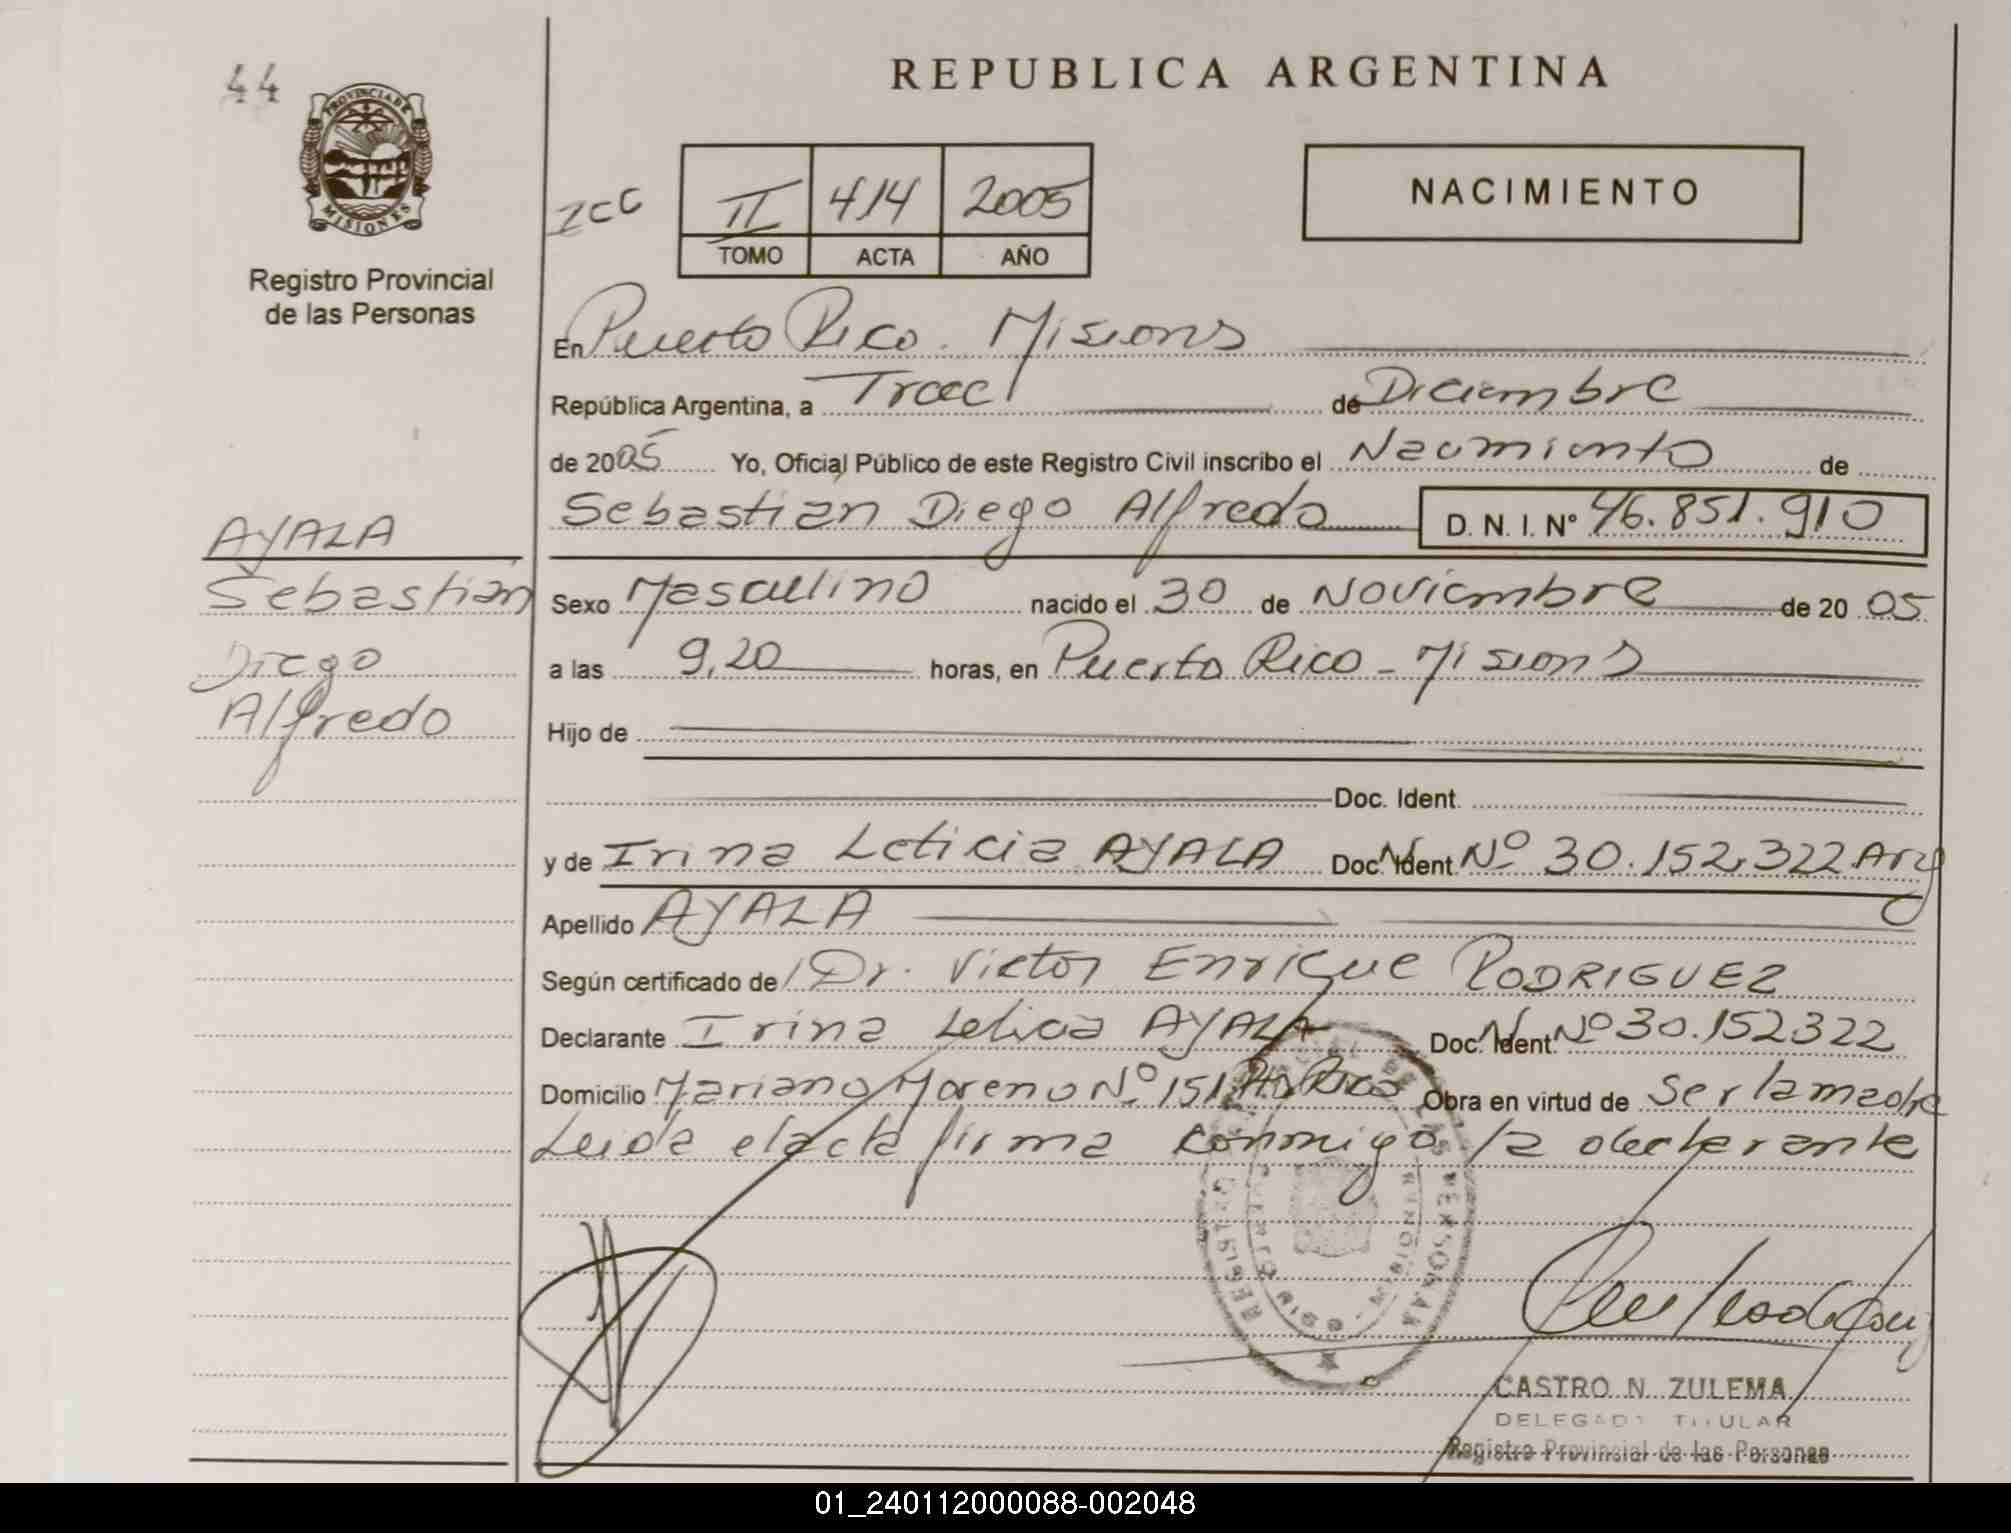 44
PROVINCIA DE
MISIONES
Registro Provincial
de las Personas
REPUBLICA ARGENTINA
II 414 2005
TOMO ACTA AÑO
NACIMIENTO
En Puerto Rico. Misions
República Argentina, a Trece de Diciembre
de 2005 Yo, Oficial Público de este Registro Civil inscribo el Nacimiento de
Sebastian Diego Alfredo D. N. I. N° 46.851.910
AYALA
Sebastián
Diego
Alfredo
Sexo Masculino nacido el 30 de Noviembre de 20 05
a las 9,20 horas, en Puerto Rico - Misions
Hijo de
Doc. Ident.
y de Irina Leticia AYALA Doc. Ident. Nº 30.152.322 Arg
Apellido AYALA
Según certificado de Dr. Victor Enrique RODRIGUEZ
Declarante Irina Leticia AYALA Doc. Ident. Nº 30.152322
Domicilio Mariano Moreno Nº 151 Pto Rico Obra en virtud de Ser la madre
Leida el acta firma conmigo la declarante
CASTRO N. ZULEMA
DELEGADA TITULAR
Registro Provinsial de las Personas
01_240112000088-002048